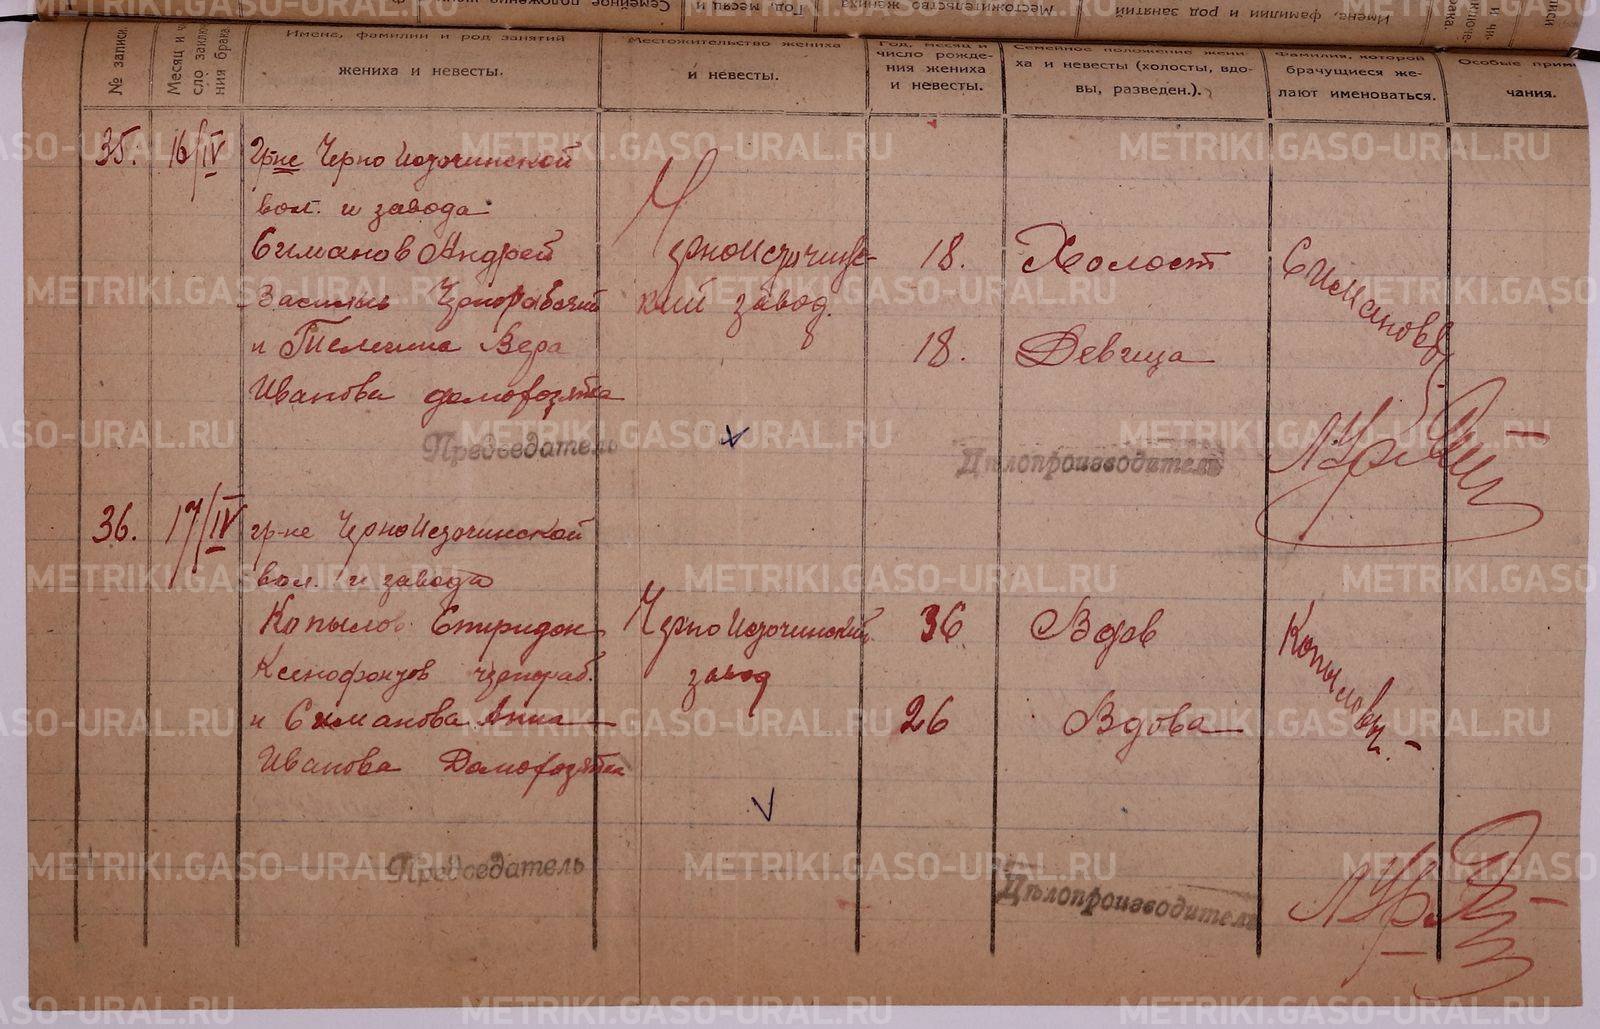 № записи.
Месяц и число заключения брака.
Имена, фамилии и род занятий
жениха и невесты.
Местожительство жениха
и невесты.
Год, месяц и
число рожде-
ния жениха
и невесты.
Семейное положение жени-
ха и невесты (холосты, вдо-
вы, разведен.).
Фамилия, которой
брачущиеся же-
лают именоваться.
Особые приме
чания.
35.
16/IV
Гр-не Черно Источинской
вол. и завода
Симанов Андрей
Василь Чернорабочий
и Телегина Вера
Иванова домохозяйка
Черно Источинс-
кий завод.
18.
18.
Холост
Девица
Симановы
Председатель
Дѣлопроизводитель
36.
17/IV
гр-не Черно Источинской
вол. и завода
Копылов Спиридон
Ксенофонтов чернораб.
и Симанова Анна
Иванова Домохозяйка
Черно Источинский
завод
36
26
Вдов
Вдова
Копыловы.
Председатель
Дѣлопроизводитель
METRIKI.GASO-URAL.RU